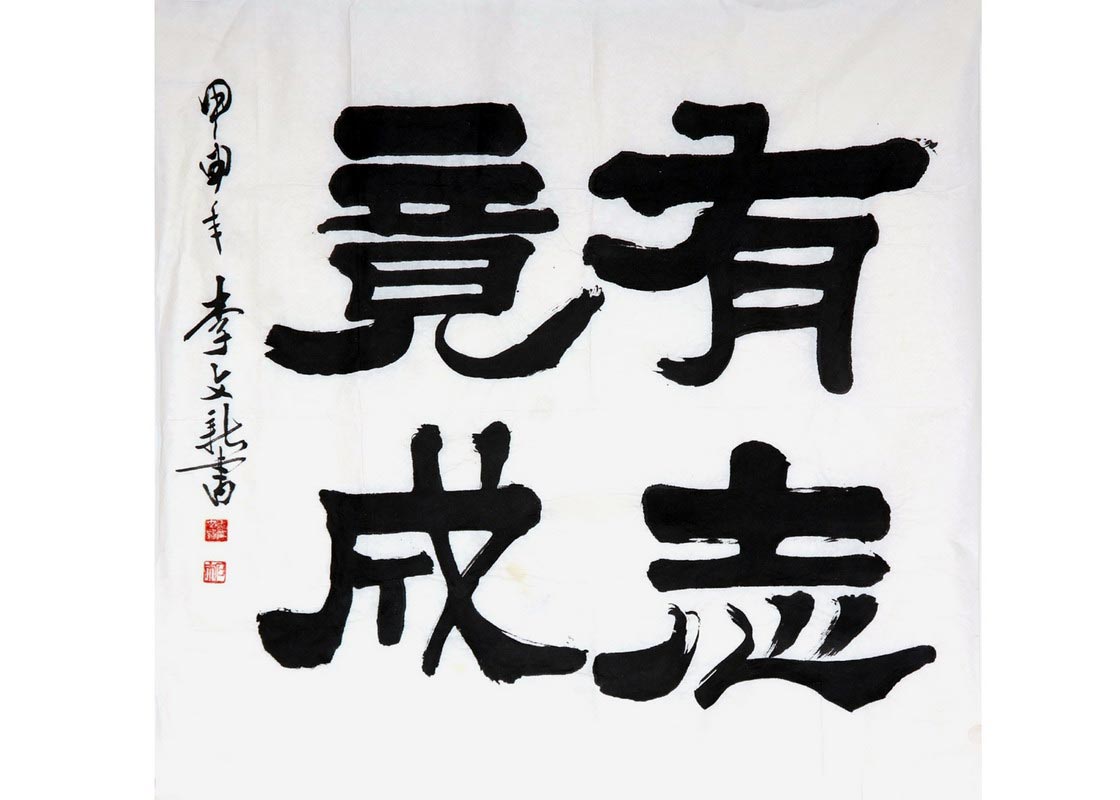 有志
竟成
甲申年 李文新書